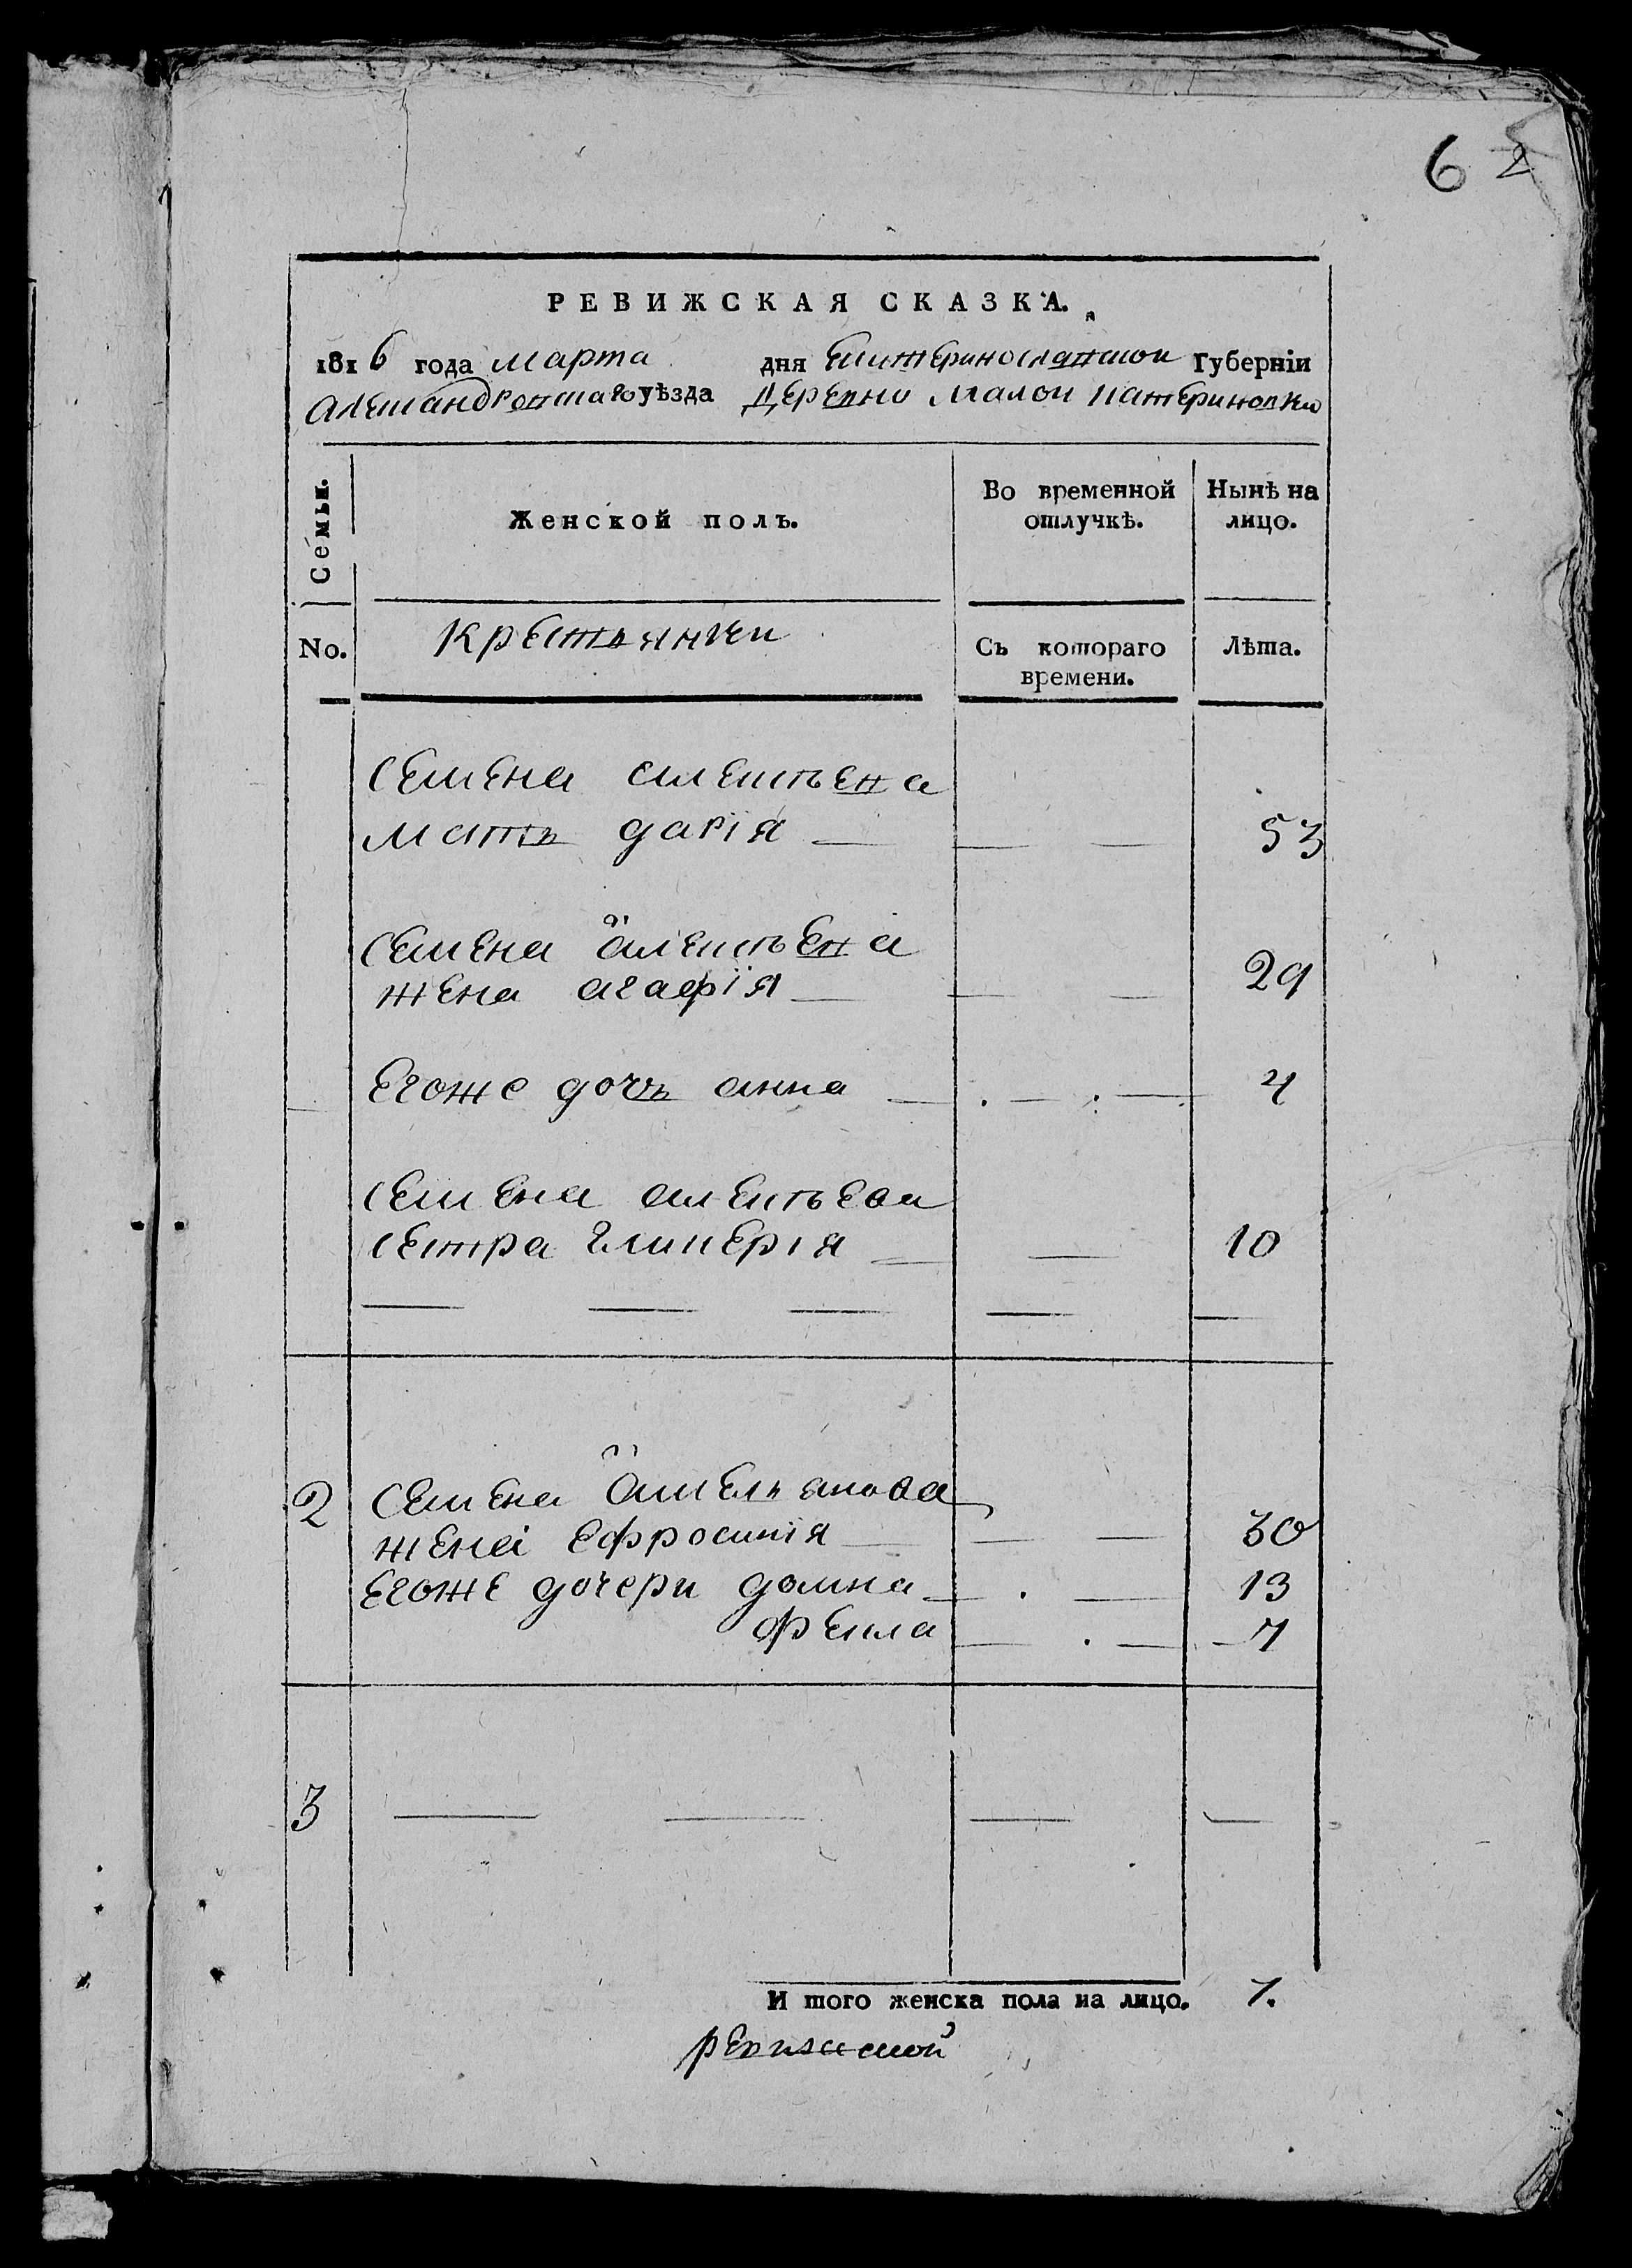 6 2
РЕВИЖСКАЯ СКАЗКА.
1816 года марта дня Екатеринославской Губерніи
Александровскаго уѣзда Деревни малой катериновки
Семьи. Женской полъ. Во временной отлучкѣ. Ныѣ на лицо.
No. крестьянки Съ котораго времени. Лѣта.
Семена алексъева
мать дарія 53
Семена алексъева
жена агафія 29
Егоже дочь анна 4
Семена алексъева
сестра гликерія 10
2 Семена амельянова
жена ефросинія 30
Егоже дочери домна 13
фекла 7
3
И того женска пола на лицо. 7.
ревижской